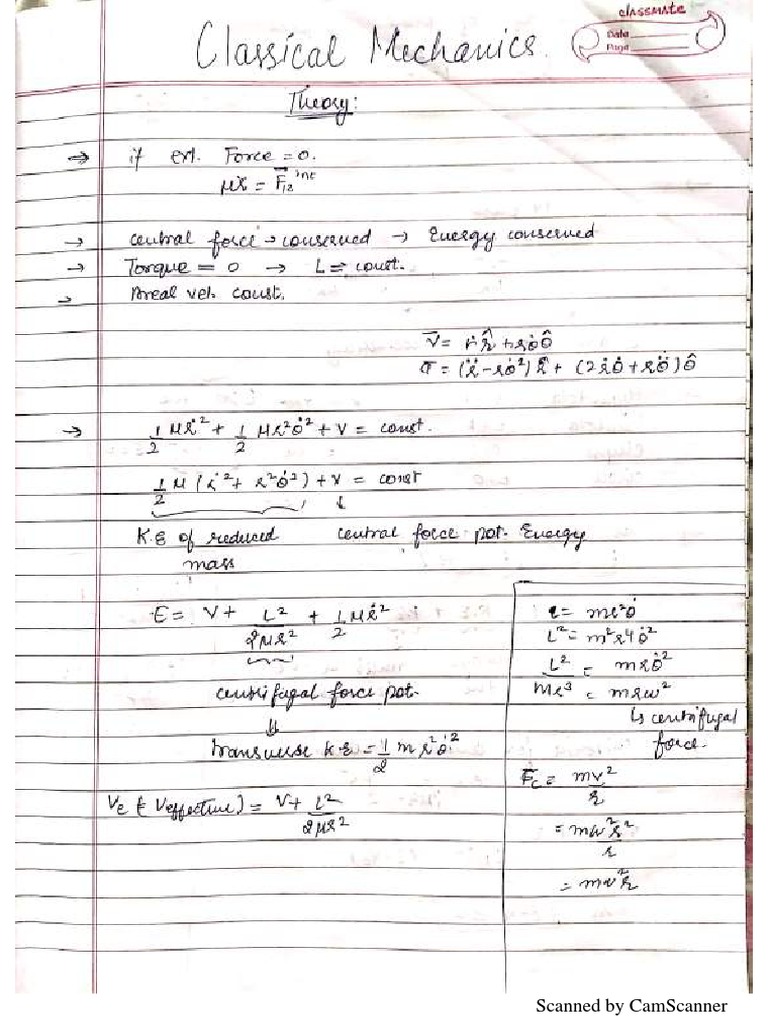 classmate
Date
Page
Classical Mechanics.
Theory:
⇒ if ext. Force = 0.
μr̈ = F₁₂ⁱⁿᵗ
→ central force → conserved → Energy conserved
→ Torque = 0 → L = const.
→ Areal vel. const.
v̄ = ṙr̂ + rθ̇θ̂
ā = (r̈ - rθ̇²) r̂ + (2ṙθ̇ + rθ̈) θ̂
→ 1/2 μṙ² + 1/2 μr²θ̇² + V = const.
1/2 μ (ṙ² + r²θ̇²) + V = const
↓
K.E of reduced central force pot. Energy
mass
E = V + L²/2μr² + 1/2 μṙ²
centrifugal force pot.
⇓
transverse K.E = 1/2 m r²θ̇²
Ve (Veffective) = V + L²/2μr²
l = mr²θ̇
L² = m²r⁴θ̇²
L²/mr³ = mrθ̇²
= mrω²
↳ centrifugal
force.
F̄c = mv²/r
= mω²r²/r
= mω²r
Scanned by CamScanner